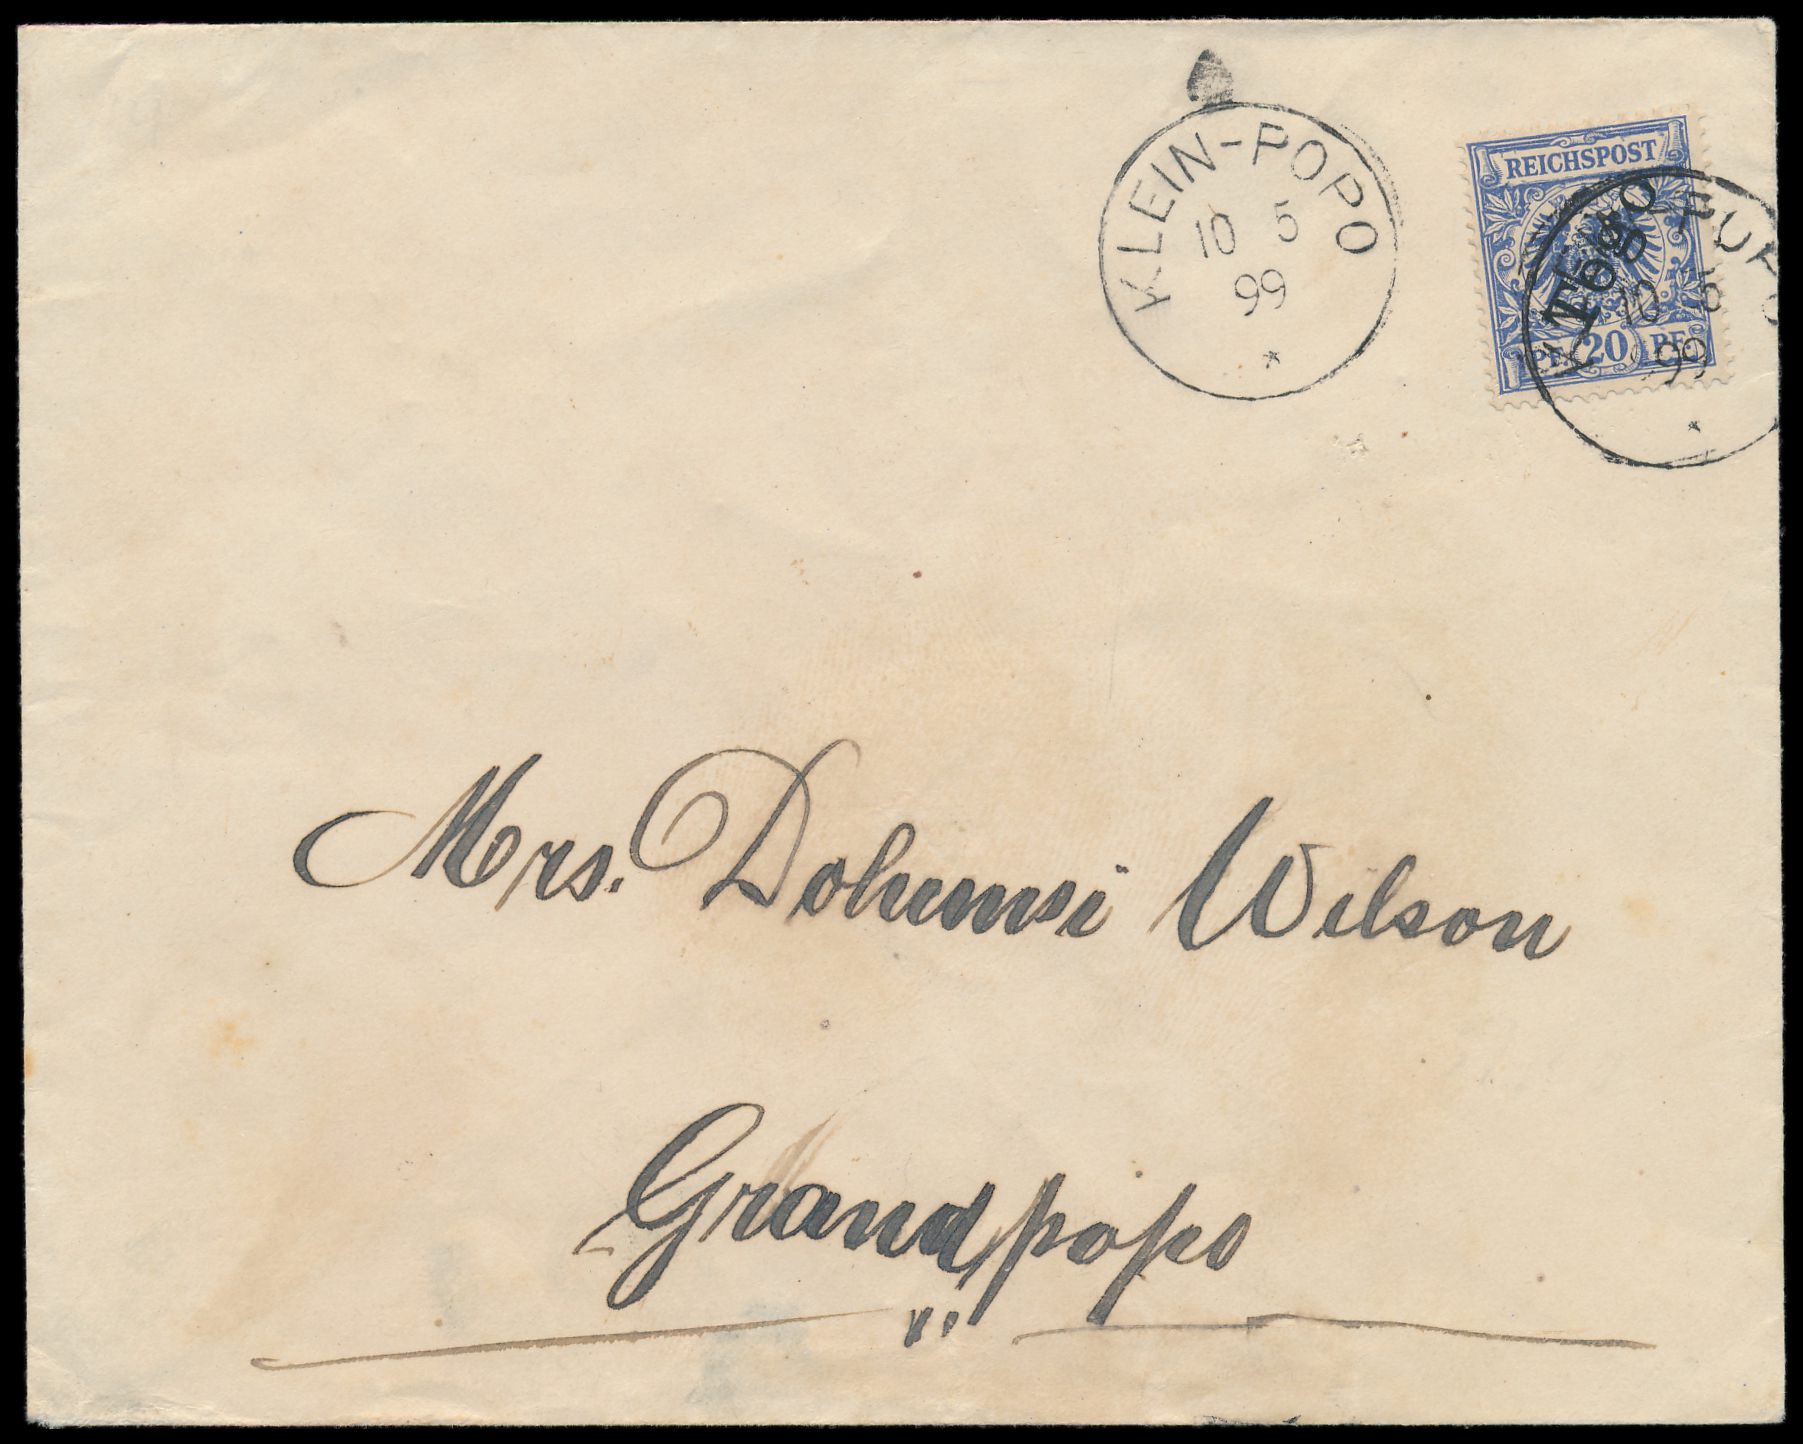 KLEIN-POPO
10 5
99
*
REICHSPOST
Togo
PF. 20 PF.
10 5
99
*
Mrs. Dohumsi Wilson
Grandpopo